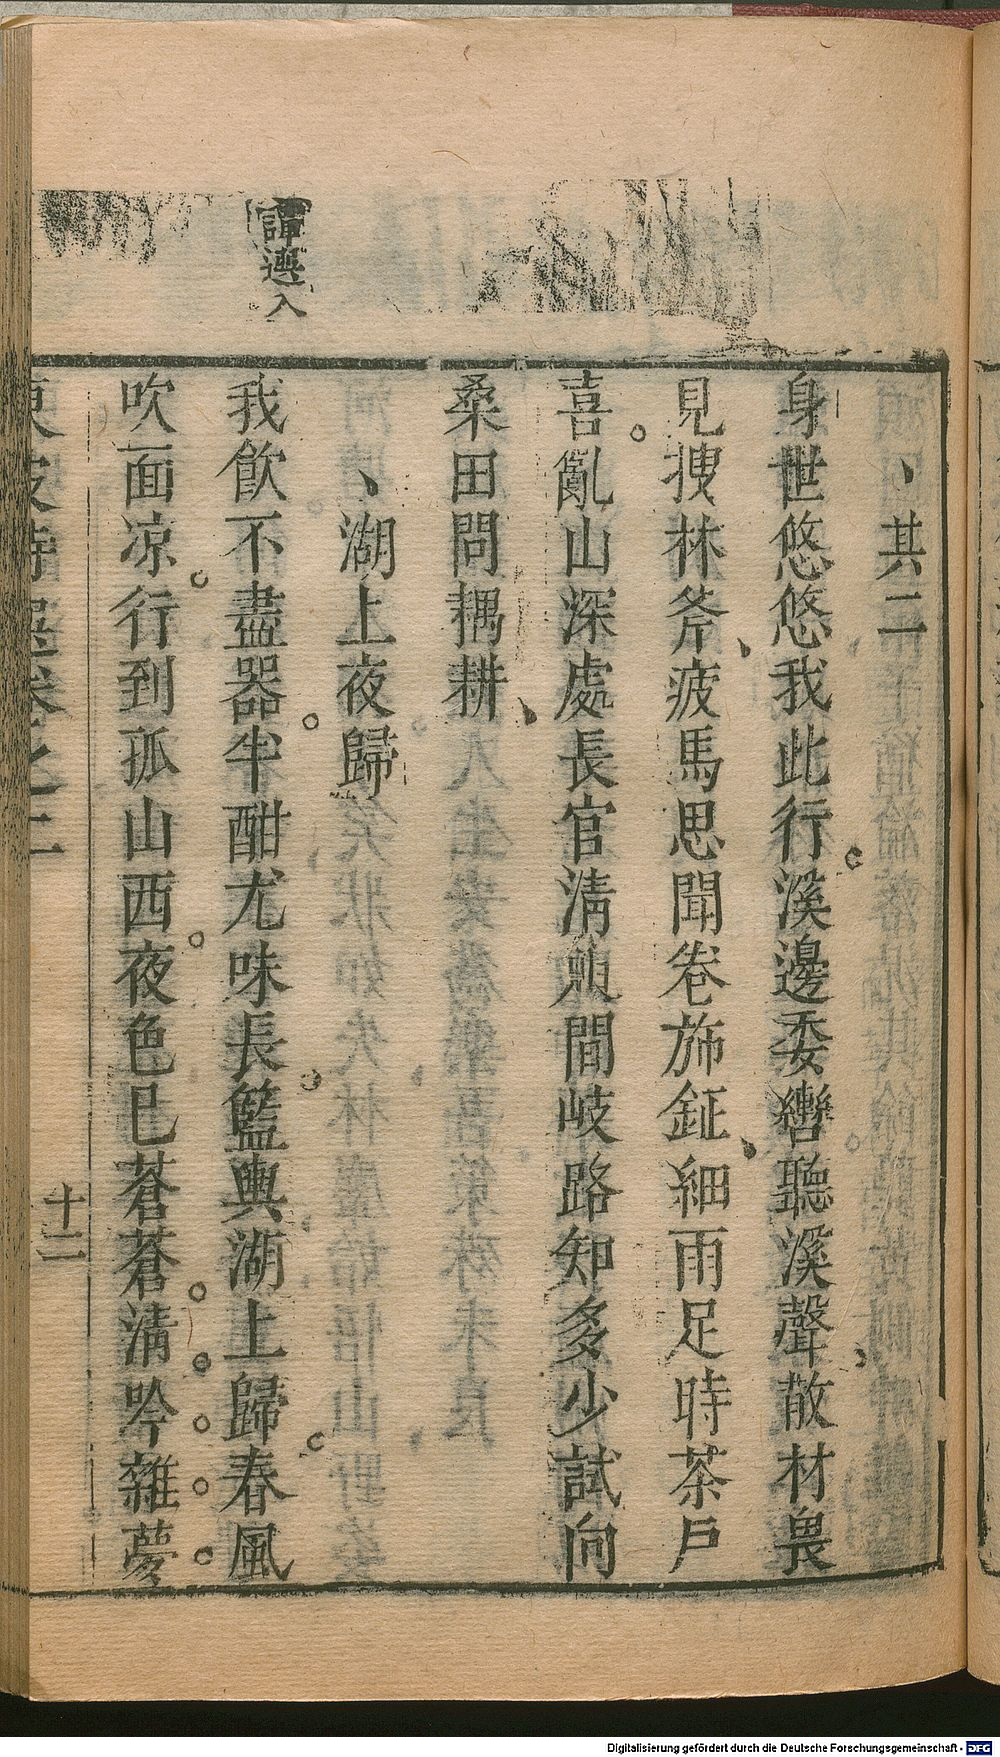 其二
身世悠悠我此行溪邊委轡聽溪聲散材畏
見搜林斧疲馬思聞卷旆鉦細雨足時茶戶
喜亂山深處長官淸人間岐路知多少試向
桑田問耦耕
湖上夜歸
我飮不盡器半酣尤味長籃輿湖上歸春風
吹面凉行到孤山西夜色已蒼蒼淸吟雜夢
譚選入
東坡詩選卷之二
十二
Digitalisierung gefördert durch die Deutsche Forschungsgemeinschaft - DFG